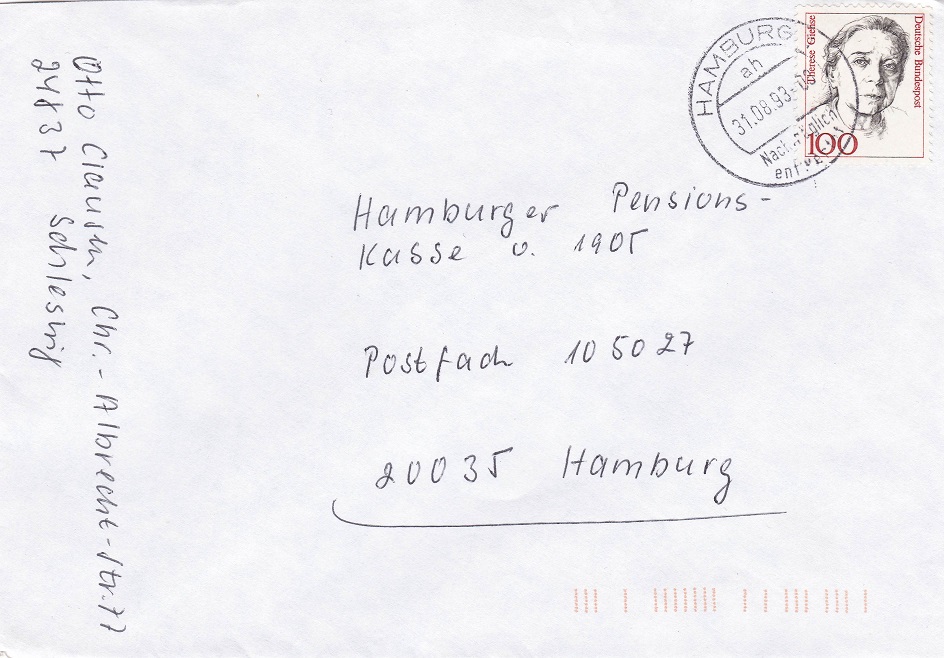 Otto Clausen, Chr.-Albrecht-Str. 77
24837 Schleswig
HAMBURG
ah
31.08.93
Nachträglich
entwertet
Therese Giehse
Deutsche Bundespost
100
Hamburger Pensions-
Kasse v. 1905
Postfach 105027
20035 Hamburg